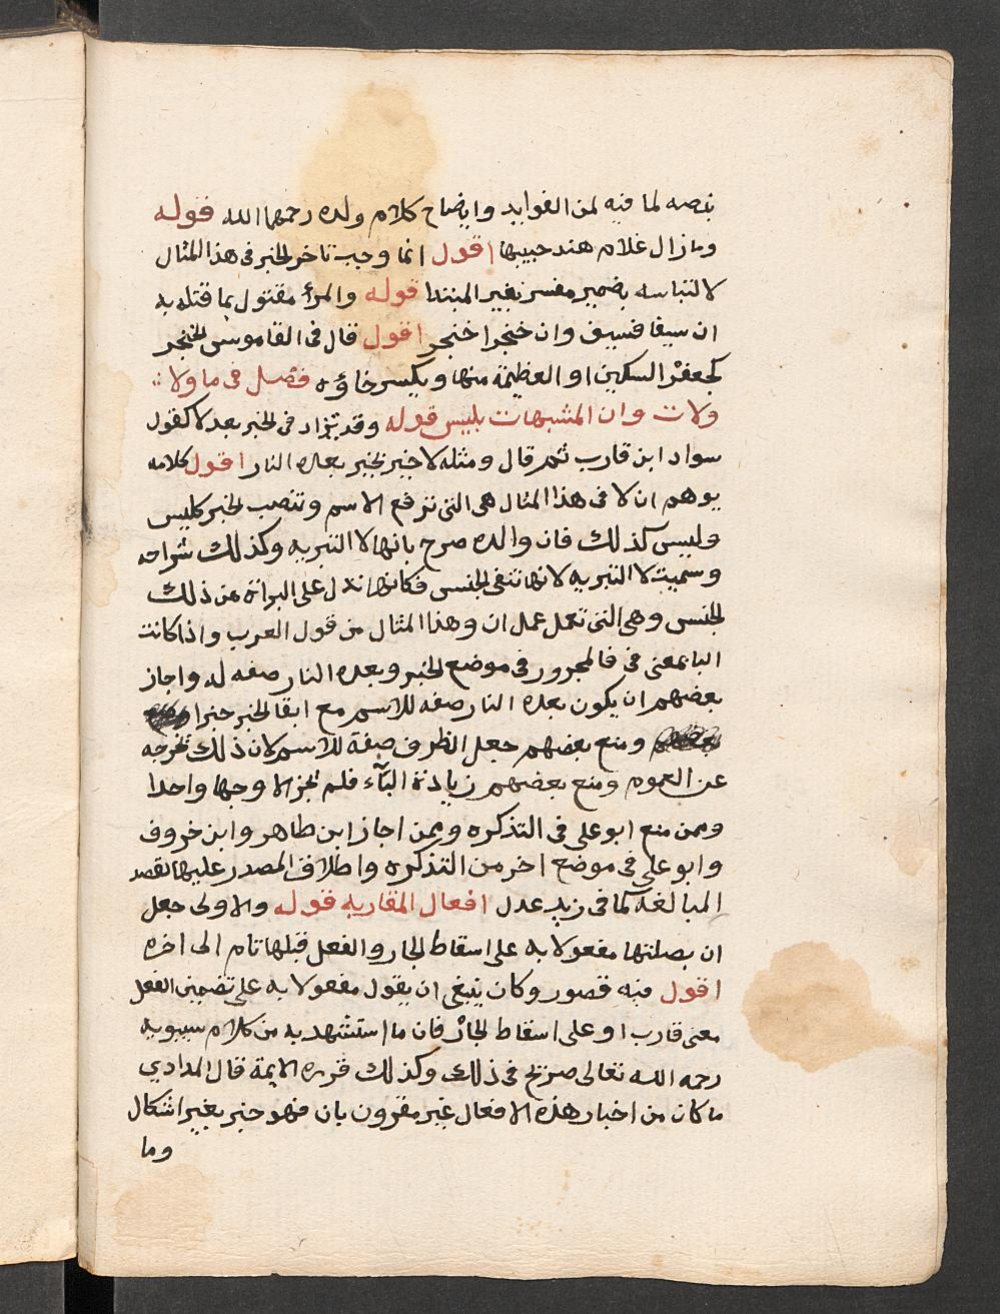 بنصه لما فيه لمن الفوايد وايضاح كلام ولده رحمهما الله قوله
ومازال غلام هند حبيبها اقول انما وجب تاخر الخبر فى هذا المثال
لالتباسه بضمير مفسر بغير المبتدا قوله والمرأ مقتول بما قتله به
ان سيفا فسيف وان خنجرا خنجر اقول قال فى القاموس الخنجر
كجعفر السكين او العظيمة منها ويكسر خاؤه فصل فى ما ولا
ولات وان المشبهات بليس قوله وقد تزاد فى الخبر بعد لا كقول
سواد ابن قارب ثم قال ومثله لا خير بخير بعده النار اقول كلامه
يوهم ان لا فى هذا المثال هى التى ترفع الاسم وتنصب الخبر كليس
وليس كذلك فان والده صرح بانها لا التبريه وكذلك شراحه
وسميت لا التبريه لانها تنفى الجنس فكانها تدل على البراة من ذلك
الجنس وهى التى تعمل عمل ان وهذا المثال من قول العرب واذا كانت
البا بمعنى فى فالمجرور فى موضع الخبر وبعده النار صفه له واجاز
بعضهم ان يكون بعده النار صفه للاسم مع ابقا الخبر خبرا
ومنع بعضهم جعل الظرف صفة للاسم لان ذلك يخرجه
عن العموم ومنع بعضهم زيادة البآء فلم يجز الا وجها واحدا
وممن منع ابو على فى التذكره وممن اجاز ابن طاهر وابن خروف
وابو على فى موضع اخر من التذكره واطلاق المصدر عليها لقصد
المبالغة كما فى زيد عدل افعال المقاربه قوله والاولى جعل
ان بصلتها مفعولا به على اسقاط الجار والفعل قبلها تام الى اخره
اقول فيه قصور وكان ينبغى ان يقول مفعولا به على تضمين الفعل
معنى قارب او على اسقاط الجار فان ما استشهد به من كلام سيبويه
رحمه الله تعالى صريح فى ذلك وكذلك قرره الايمة قال المرادي
ما كان من اخبار هذه الافعال غير مقرون بان فهو خبر بغير اشكال
وما